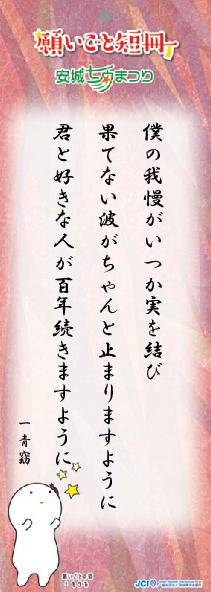 願いごと短冊
安城七夕まつり
僕の我慢がいつか実を結び
果てない波がちゃんと止まりますように
君と好きな人が百年続きますように
一青窈
JCI